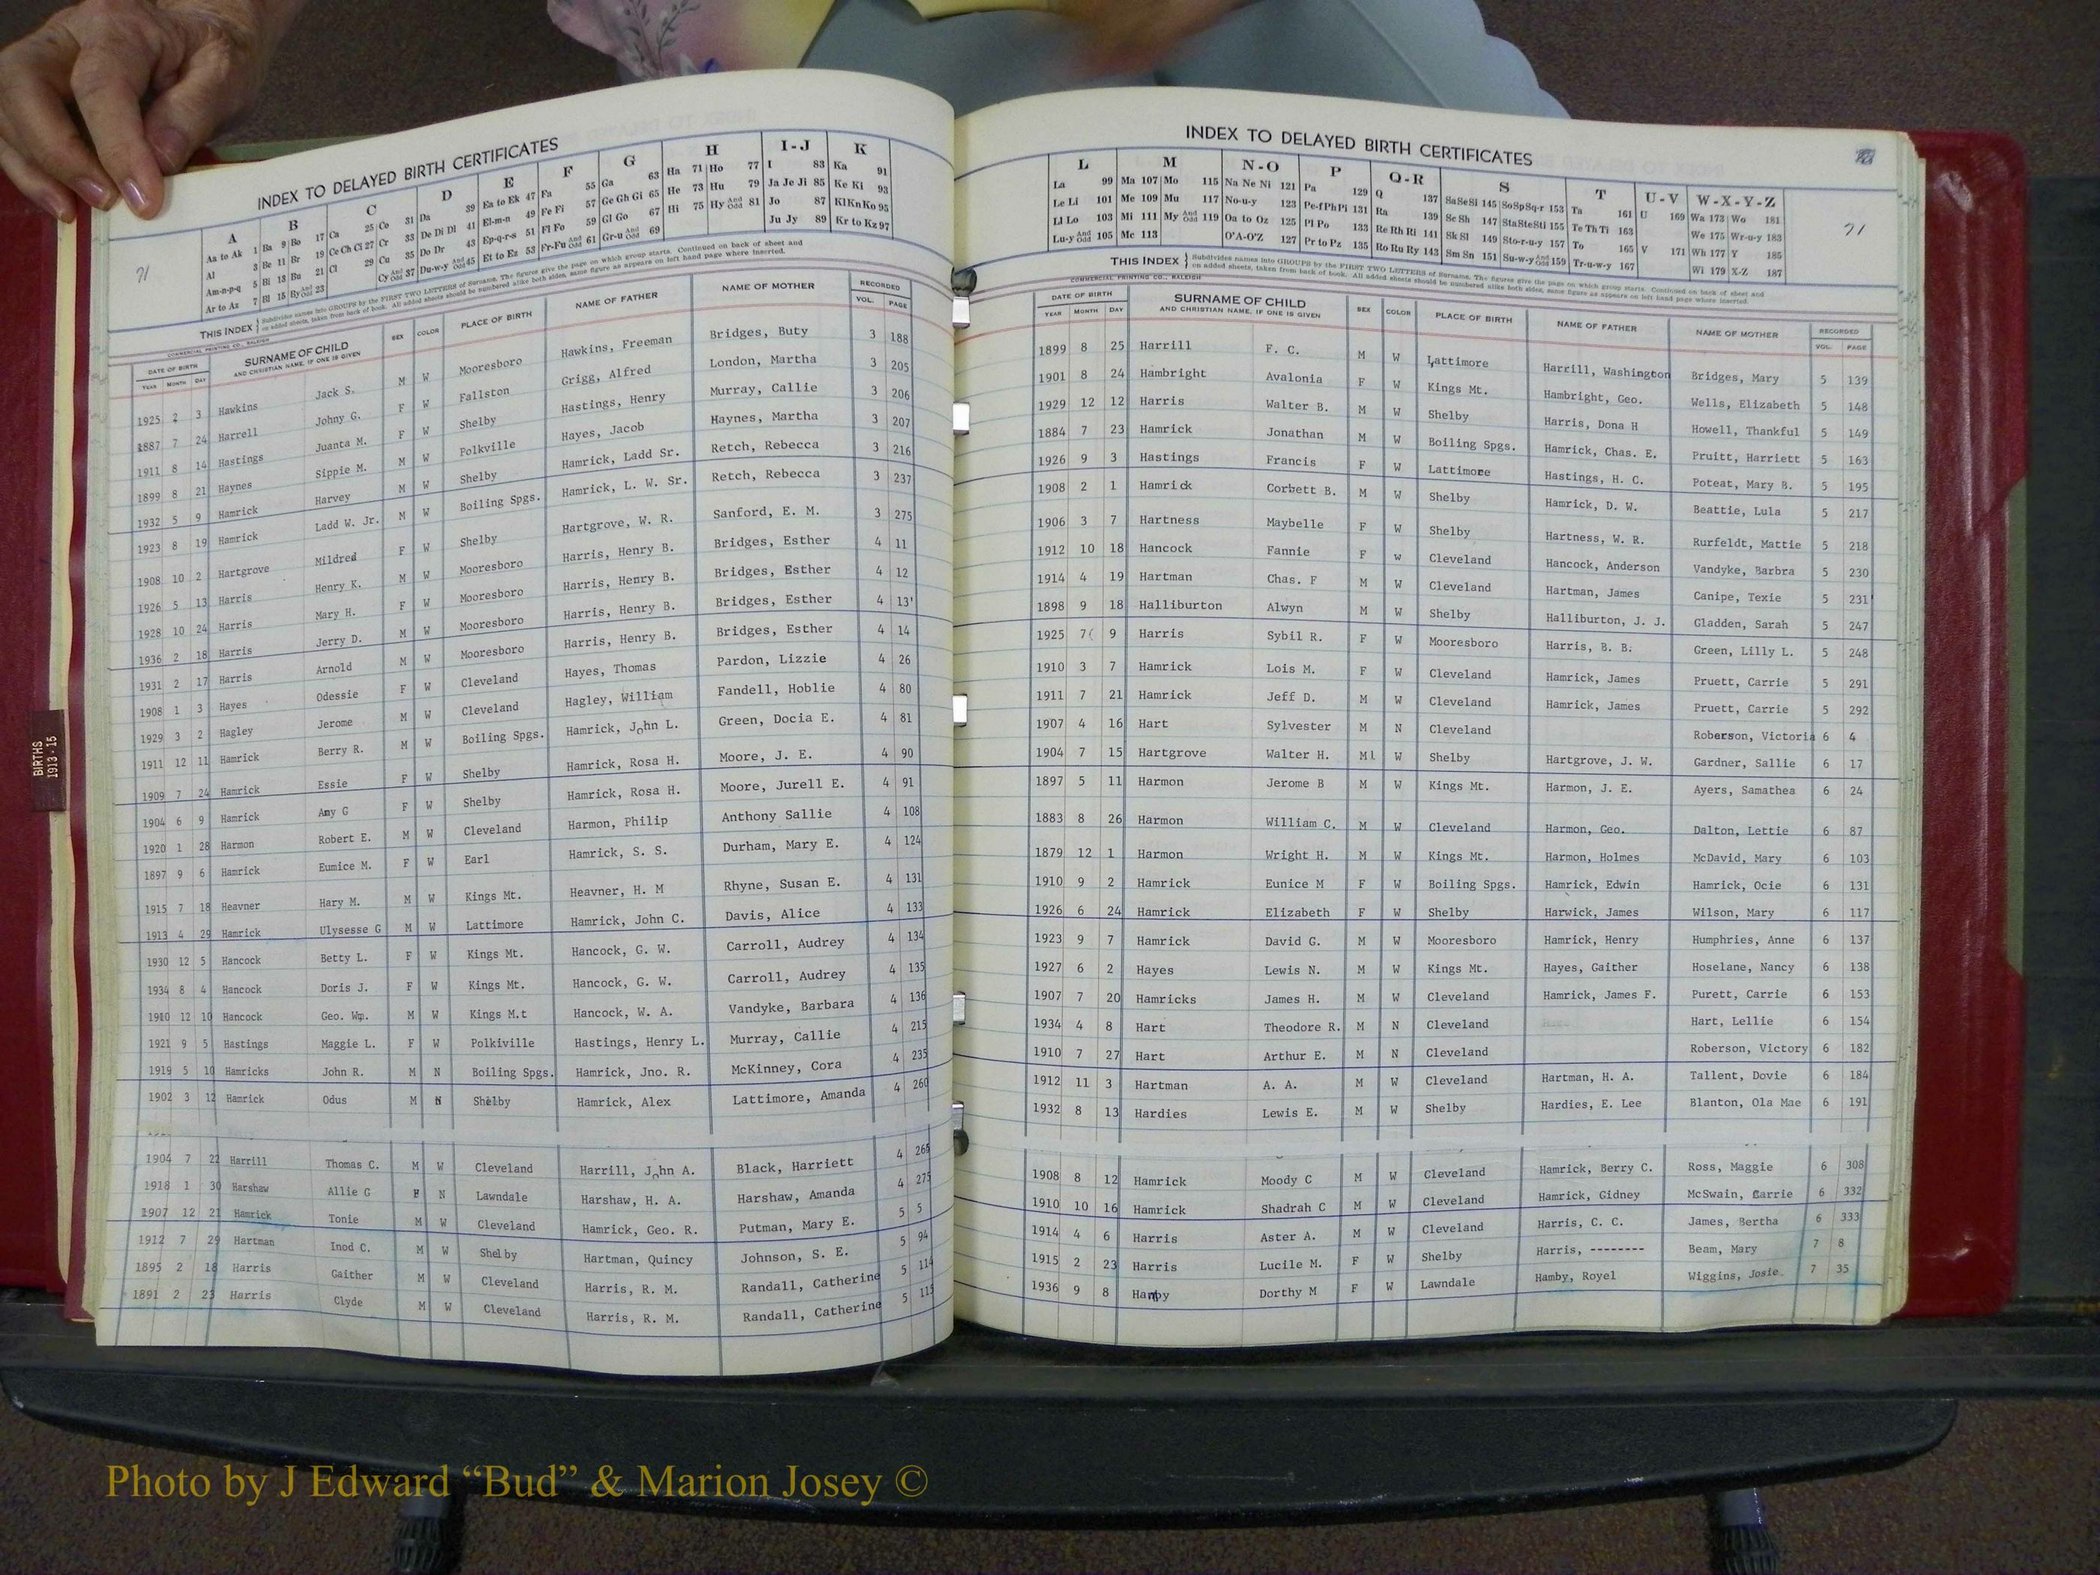 INDEX TO DELAYED BIRTH CERTIFICATES
71
A B C D E F G H I-J K
Aa to Ak 1 Ba 9 Bo 17 Ca 25 Co 31 Da 39 Ea to Ek 47 Fa 55 Ga 63 Ha 71 Ho 77 I 83 Ka 91
Al 3 Be 11 Br 19 Ce Ch Ci 27 Cr 33 De Di Dl 41 El-m-n 49 Fe Fi 57 Ge Gh Gi 65 He 73 Hu 79 Ja Je Ji 85 Ke Ki 93
Am-n-p-q 5 Bi 13 Bu 21 Cl 29 Cu 35 Do Dr 43 Ep-q-r-s 51 Fl Fo 59 Gl Go 67 Hi 75 Hy And Odd 81 Jo 87 Kl Kn Ko 95
Ar to Az 7 Bl 15 By And Odd 23 Cy And Odd 37 Du-w-y And Odd 45 Et to Ez 53 Fr-Fu And Odd 61 Gr-u And Odd 69 Ju Jy 89 Kr to Kz 97
THIS INDEX Subdivides names into GROUPS by the FIRST TWO LETTERS of Surname. The figures give the page on which group starts. Continued on back of sheet and
on added sheets, taken from back of book. All added sheets should be numbered alike both sides, same figure as appears on left hand page where inserted.
COMMERCIAL PRINTING CO., RALEIGH
DATE OF BIRTH SURNAME OF CHILD SEX COLOR PLACE OF BIRTH NAME OF FATHER NAME OF MOTHER RECORDED
YEAR MONTH DAY AND CHRISTIAN NAME, IF ONE IS GIVEN VOL. PAGE
1925 2 3 Hawkins Jack S. M W Mooresboro Hawkins, Freeman Bridges, Buty 3 188
1887 7 24 Harrell Johny G. F W Fallston Grigg, Alfred London, Martha 3 205
1911 8 14 Hastings Juanta M. F W Shelby Hastings, Henry Murray, Callie 3 206
1899 8 21 Haynes Sippie M. M W Polkville Hayes, Jacob Haynes, Martha 3 207
1932 5 9 Hamrick Harvey M W Shelby Hamrick, Ladd Sr. Retch, Rebecca 3 216
1923 8 19 Hamrick Ladd W. Jr. M W Boiling Spgs. Hamrick, L. W. Sr. Retch, Rebecca 3 237
1908 10 2 Hartgrove Mildred F W Shelby Hartgrove, W. R. Sanford, E. M. 3 275
1926 5 13 Harris Henry K. M W Mooresboro Harris, Henry B. Bridges, Esther 4 11
1928 10 24 Harris Mary H. F W Mooresboro Harris, Henry B. Bridges, Esther 4 12
1936 2 18 Harris Jerry D. M W Mooresboro Harris, Henry B. Bridges, Esther 4 13
1931 2 17 Harris Arnold M W Mooresboro Harris, Henry B. Bridges, Esther 4 14
1908 1 3 Hayes Odessie F W Cleveland Hayes, Thomas Pardon, Lizzie 4 26
1929 3 2 Hagley Jerome M W Cleveland Hagley, William Fandell, Hoblie 4 80
1911 12 11 Hamrick Berry R. M W Boiling Spgs. Hamrick, John L. Green, Docia E. 4 81
1909 7 24 Hamrick Essie F W Shelby Hamrick, Rosa H. Moore, J. E. 4 90
1904 6 9 Hamrick Amy G F W Shelby Hamrick, Rosa H. Moore, Jurell E. 4 91
1920 1 28 Harmon Robert E. M W Cleveland Harmon, Philip Anthony Sallie 4 108
1897 9 6 Hamrick Eumice M. F W Earl Hamrick, S. S. Durham, Mary E. 4 124
1915 7 18 Heavner Hary M. M W Kings Mt. Heavner, H. M Rhyne, Susan E. 4 131
1913 4 29 Hamrick Ulysesse G M W Lattimore Hamrick, John C. Davis, Alice 4 133
1930 12 5 Hancock Betty L. F W Kings Mt. Hancock, G. W. Carroll, Audrey 4 134
1934 8 4 Hancock Doris J. F W Kings Mt. Hancock, G. W. Carroll, Audrey 4 135
1910 12 10 Hancock Geo. Wm. M W Kings M.t Hancock, W. A. Vandyke, Barbara 4 136
1921 9 5 Hastings Maggie L. F W Polkiville Hastings, Henry L. Murray, Callie 4 215
1919 5 10 Hamricks John R. M N Boiling Spgs. Hamrick, Jno. R. McKinney, Cora 4 235
1902 3 12 Hamrick Odus M N Shelby Hamrick, Alex Lattimore, Amanda 4 260
1904 7 22 Harrill Thomas C. M W Cleveland Harrill, John A. Black, Harriett 4 266
1918 1 30 Harshaw Allie G F N Lawndale Harshaw, H. A. Harshaw, Amanda 4 275
1907 12 21 Hamrick Tonie M W Cleveland Hamrick, Geo. R. Putman, Mary E. 5 5
1912 7 29 Hartman Inod C. M W Shelby Hartman, Quincy Johnson, S. E. 5 94
1895 2 18 Harris Gaither M W Cleveland Harris, R. M. Randall, Catherine 5 114
1891 2 23 Harris Clyde M W Cleveland Harris, R. M. Randall, Catherine 5 115
INDEX TO DELAYED BIRTH CERTIFICATES
71
L M N-O P Q-R S T U-V W-X-Y-Z
La 99 Ma 107 Mo 115 Na Ne Ni 121 Pa 129 Q 137 Sa Se Si 145 So Sp Sq-r 153 Ta 161 U 169 Wa 173 Wo 181
Le Li 101 Me 109 Mu 117 No-u-y 123 Pe-f Ph Pi 131 Ra 139 Sc Sh 147 Sta Ste Sti 155 Te Th Ti 163 We 175 Wr-u-y 183
Ll Lo 103 Mi 111 My And Odd 119 Oa to Oz 125 Pl Po 133 Re Rh Ri 141 Sk Sl 149 Sto-r-u-y 157 To 165 V 171 Wh 177 Y 185
Lu-y And Odd 105 Mc 113 O'A-O'Z 127 Pr to Pz 135 Ro Ru Ry 143 Sm Sn 151 Su-w-y And Odd 159 Tr-u-w-y 167 Wi 179 X-Z 187
THIS INDEX Subdivides names into GROUPS by the FIRST TWO LETTERS of Surname. The figures give the page on which group starts. Continued on back of sheet and
on added sheets, taken from back of book. All added sheets should be numbered alike both sides, same figure as appears on left hand page where inserted.
COMMERCIAL PRINTING CO., RALEIGH
DATE OF BIRTH SURNAME OF CHILD SEX COLOR PLACE OF BIRTH NAME OF FATHER NAME OF MOTHER RECORDED
YEAR MONTH DAY AND CHRISTIAN NAME, IF ONE IS GIVEN VOL. PAGE
1899 8 25 Harrill F. C. M W Lattimore Harrill, Washington Bridges, Mary 5 139
1901 8 24 Hambright Avalonia F W Kings Mt. Hambright, Geo. Wells, Elizabeth 5 148
1929 12 12 Harris Walter B. M W Shelby Harris, Dona H Howell, Thankful 5 149
1884 7 23 Hamrick Jonathan M W Boiling Spgs. Hamrick, Chas. E. Pruitt, Harriett 5 163
1926 9 3 Hastings Francis F W Lattimore Hastings, H. C. Poteat, Mary B. 5 195
1908 2 1 Hamrick Corbett B. M W Shelby Hamrick, D. W. Beattie, Lula 5 217
1906 3 7 Hartness Maybelle F W Shelby Hartness, W. R. Rurfeldt, Mattie 5 218
1912 10 18 Hancock Fannie F W Cleveland Hancock, Anderson Vandyke, Barbra 5 230
1914 4 19 Hartman Chas. F M W Cleveland Hartman, James Canipe, Texie 5 231
1898 9 18 Halliburton Alwyn M W Shelby Halliburton, J. J. Gladden, Sarah 5 247
1925 7 9 Harris Sybil R. F W Mooresboro Harris, B. B. Green, Lilly L. 5 248
1910 3 7 Hamrick Lois M. F W Cleveland Hamrick, James Pruett, Carrie 5 291
1911 7 21 Hamrick Jeff D. M W Cleveland Hamrick, James Pruett, Carrie 5 292
1907 4 16 Hart Sylvester M N Cleveland Roberson, Victoria 6 4
1904 7 15 Hartgrove Walter H. M W Shelby Hartgrove, J. W. Gardner, Sallie 6 17
1897 5 11 Harmon Jerome B M W Kings Mt. Harmon, J. E. Ayers, Samathea 6 24
1883 8 26 Harmon William C. M W Cleveland Harmon, Geo. Dalton, Lettie 6 87
1879 12 1 Harmon Wright H. M W Kings Mt. Harmon, Holmes McDavid, Mary 6 103
1910 9 2 Hamrick Eunice M F W Boiling Spgs. Hamrick, Edwin Hamrick, Ocie 6 131
1926 6 24 Hamrick Elizabeth F W Shelby Harwick, James Wilson, Mary 6 117
1923 9 7 Hamrick David G. M W Mooresboro Hamrick, Henry Humphries, Anne 6 137
1927 6 2 Hayes Lewis N. M W Kings Mt. Hayes, Gaither Hoselane, Nancy 6 138
1907 7 20 Hamricks James H. M W Cleveland Hamrick, James F. Purett, Carrie 6 153
1934 4 8 Hart Theodore R. M N Cleveland Hart, Lellie 6 154
1910 7 27 Hart Arthur E. M N Cleveland Roberson, Victory 6 182
1912 11 3 Hartman A. A. M W Cleveland Hartman, H. A. Tallent, Dovie 6 184
1932 8 13 Hardies Lewis E. M W Shelby Hardies, E. Lee Blanton, Ola Mae 6 191
1908 8 12 Hamrick Moody C M W Cleveland Hamrick, Berry C. Ross, Maggie 6 308
1910 10 16 Hamrick Shadrah C M W Cleveland Hamrick, Gidney McSwain, Carrie 6 332
1914 4 6 Harris Aster A. M W Cleveland Harris, C. C. James, Bertha 6 333
1915 2 23 Harris Lucile M. F W Shelby Harris, -------- Beam, Mary 7 8
1936 9 8 Hamby Dorthy M F W Lawndale Hamby, Royel Wiggins, Josie 7 35
BIRTHS
1913-15
Photo by J Edward “Bud” & Marion Josey ©